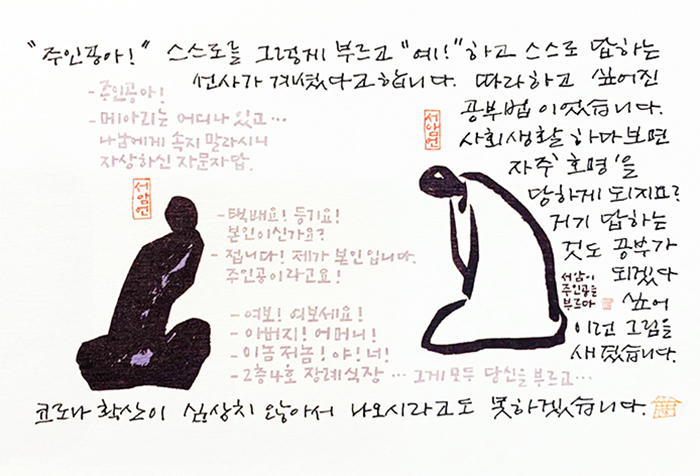 "주인공아!" 스스로를 그렇게 부르고 "예!" 하고 스스로 답하는
선사가 계셨다고 합니다. 따라하고 싶어진
공부법이었습니다.
사회생활 하다보면
자주 '호명'을
당하게 되지요?
거기 답하는
것도 공부가
되겠다
싶어
이런 그림을
새겼습니다.
- 주인공아!
- 메아리는 어디나 있고…
나남에게 속지 말라시니
자상하신 자문자답.
서암언
서암언
- 택배요! 등기요!
본인이신가요?
- 접니다! 제가 본인입니다.
주인공이라고요!
- 여보! 여보세요!
- 아버지! 어머니!
- 이놈저놈! 야! 너!
- 2층4호 장례식장 … 그게 모두 당신을 부르고…
서암이
주인공을
부르다
코로나 확산이 심상치 않아서 나오시라고도 못하겠습니다.